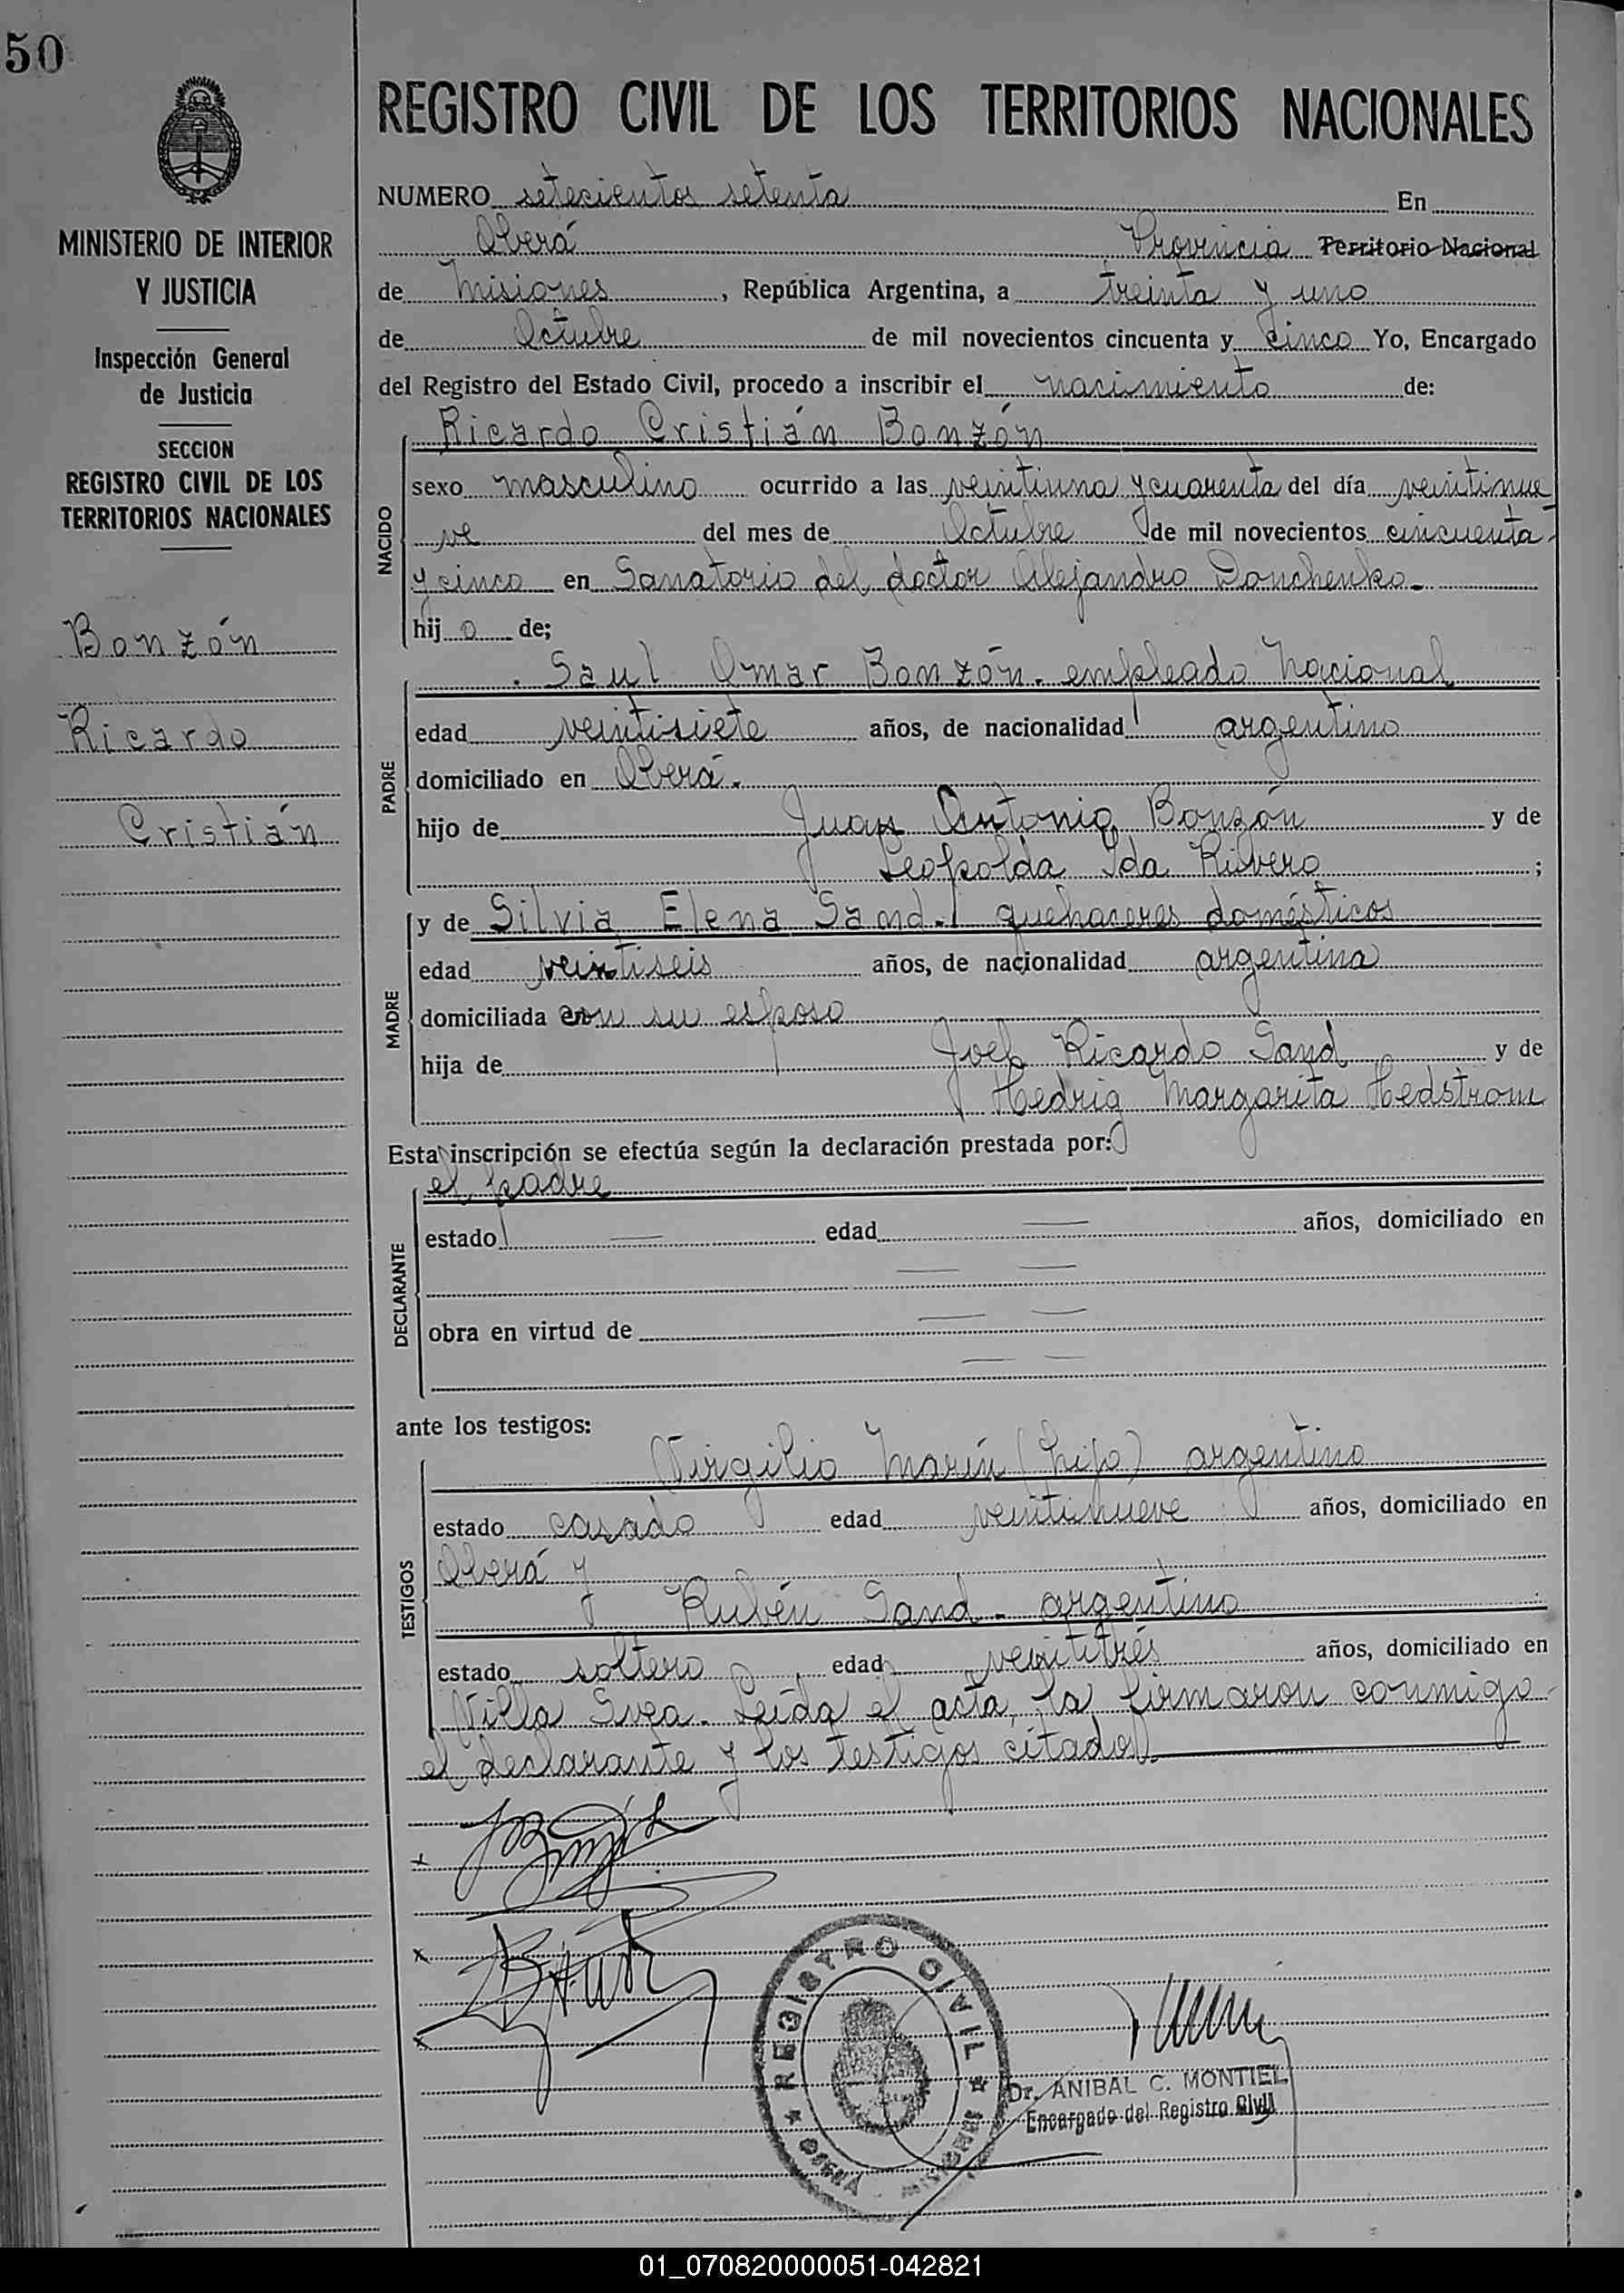 50
REGISTRO CIVIL DE LOS TERRITORIOS NACIONALES
MINISTERIO DE INTERIOR
Y JUSTICIA
Inspección General
de Justicia
SECCION
REGISTRO CIVIL DE LOS
TERRITORIOS NACIONALES
Bonzón
Ricardo
Cristián
NUMERO setecientos setenta En
Oberá Provincia Territorio Nacional
de Misiones, República Argentina, a treinta y uno
de Octubre de mil novecientos cincuenta y cinco Yo, Encargado
del Registro del Estado Civil, procedo a inscribir el nacimiento de:
NACIDO
Ricardo Cristián Bonzón
sexo masculino ocurrido a las veintiuna y cuarenta del día veintinue
ve del mes de Octubre de mil novecientos cincuenta
y cinco en Sanatorio del doctor Alejandro Danchenko.
hijo de;
PADRE
Saul Omar Bonzón. empleado Nacional
edad veintisiete años, de nacionalidad argentino
domiciliado en Oberá.
hijo de Juan Antonio Bonzón y de
Leopolda Ida Rivero ;
MADRE
y de Silvia Elena Sand. quehaceres domésticos
edad veintiseis años, de nacionalidad argentina
domiciliada con su esposo
hija de Joel Ricardo Sand y de
Hedrig Margarita Hedstrom
Esta inscripción se efectúa según la declaración prestada por:
DECLARANTE
el padre
estado — edad — años, domiciliado en
— —
obra en virtud de — —
— —
ante los testigos:
TESTIGOS
Virgilio Marín (hijo) argentino
estado casado edad veintinueve años, domiciliado en
Oberá y
Rubén Sand - argentino
estado soltero, edad veintitrés años, domiciliado en
Villa Svea. Leída el acta, la firmaron conmigo
el declarante y los testigos citados.
REGISTRO CIVIL
OBERÁ - MISIONES
Dr. ANIBAL C. MONTIEL
Encargado del Registro Civil
01_070820000051-042821